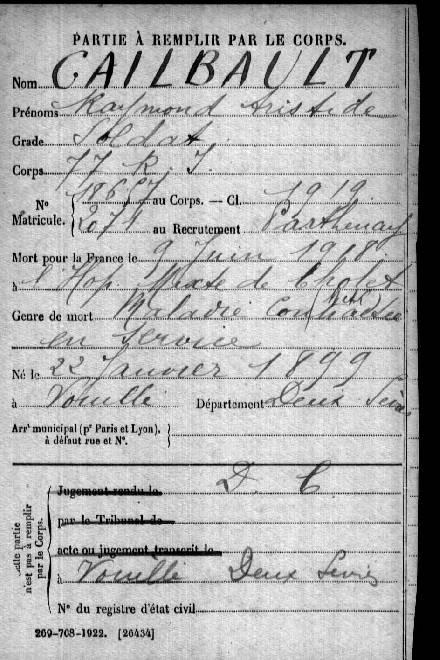 PARTIE À REMPLIR PAR LE CORPS.
Nom CAILBAULT
Prénoms Raymond Aristide
Grade Soldat
Corps 77 R. I.
N° Matricule. au Corps. — Cl. 1919
2071 au Recrutement Parthenay
Mort pour la France le 9 Juin 1918
à l'Hop. Mixte de Cholet
Genre de mort Maladie Contractée
en service
Né le 22 Janvier 1899
à Vouillé Département Deux Sèvres
Arrt municipal (pr Paris et Lyon), à défaut rue et N°.
Cette partie n'est pas à remplir par le Corps.
Jugement rendu le D. C.
par le Tribunal de
acte ou jugement transcrit le
à Vouillé Deux Sèvres
N° du registre d'état civil
269-708-1922. [26434]